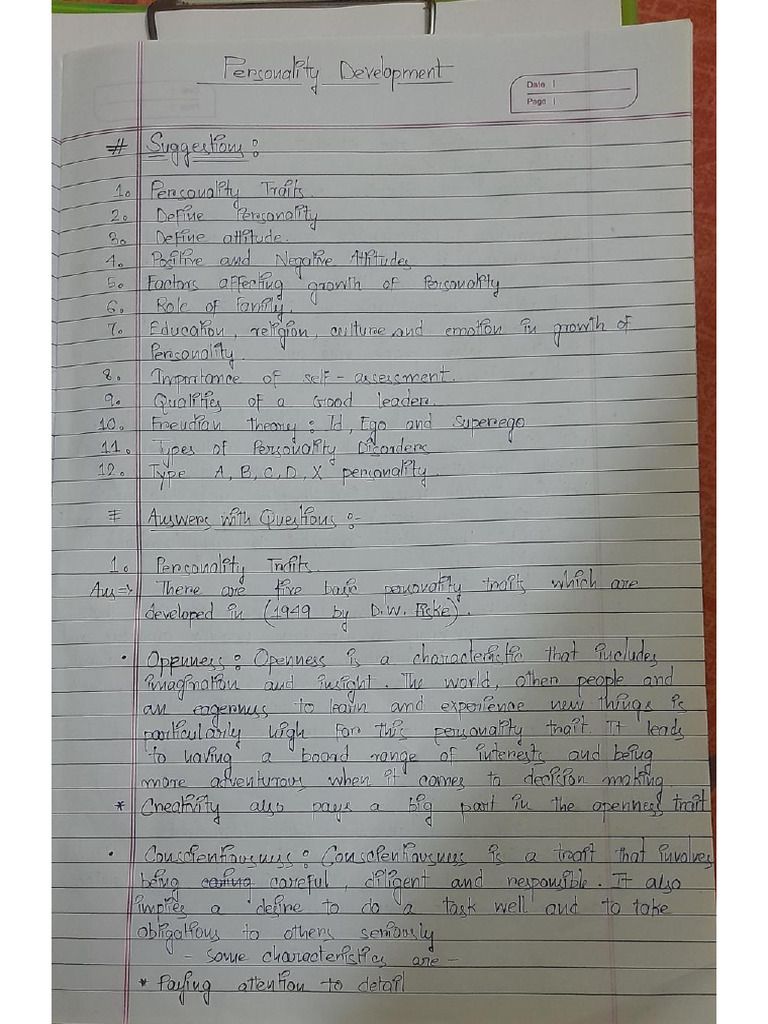 Personality Development
Date |
Page |
# Suggestions :
1. Personality Traits.
2. Define Personality
3. Define attitude.
4. Positive and Negative Attitudes
5. Factors affecting growth of Personality
6. Role of family.
7. Education, religion, culture and emotion in growth of
Personality.
8. Importance of self-assessment.
9. Qualities of a Good leader.
10. Freudian theory : Id, Ego and Superego
11. Types of Personality Disorders
12. Type A, B, C, D, X personality.
# Answers with Questions :-
1. Personality Traits.
Ans => There are five basic personality traits which are
developed in (1949 by D.W. Fiske).
• Openness : Openness is a characteristic that includes
imagination and insight. The world, other people and
an eagerness to learn and experience new things is
particularly high for this personality trait. It leads
to having a board range of interests and being
more adventurous when it comes to decision making
* Creativity also pays a big part in the openness trait
• Conscientiousness : Conscientiousness is a trait that involves
being careful, diligent and responsible. It also
implies a define to do a task well and to take
obligations to others seriously
- Some characteristics are -
* Paying attention to detail